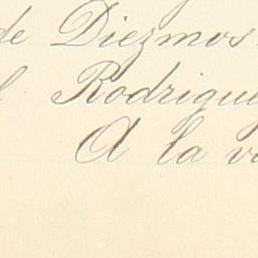 de Diezmos
Rodrigue
A la v